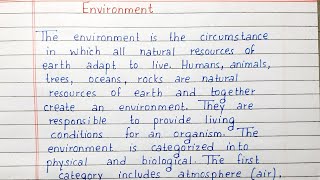 Environment
The environment is the circumstance
in which all natural resources of
earth adapt to live. Humans, animals,
trees, oceans, rocks are natural
resources of earth and together
create an environment. They are
responsible to provide living
conditions for an organism. The
environment is categorized into
physical and biological. The first
category includes atmosphere (air),